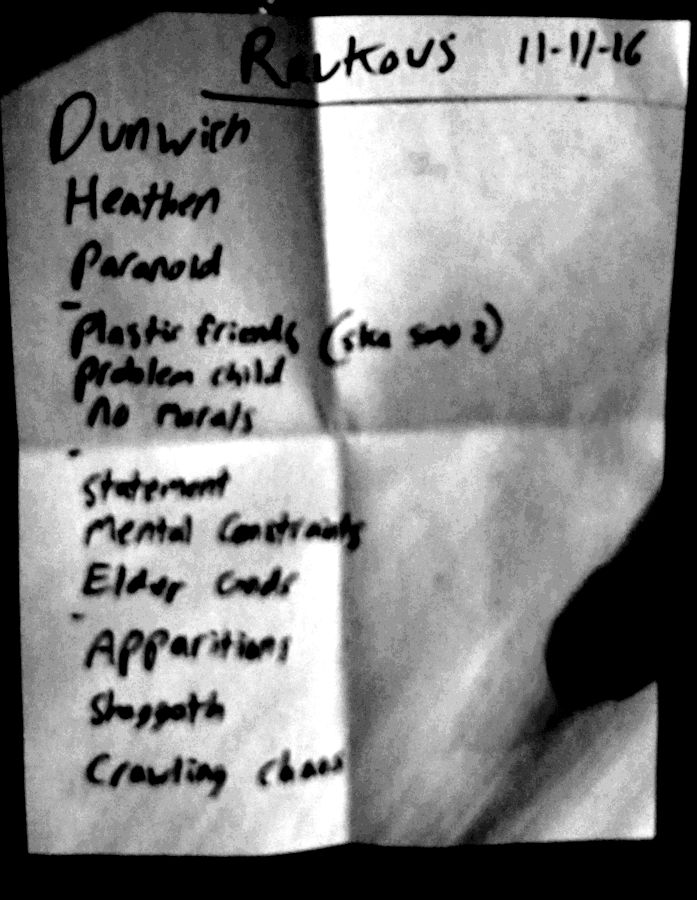 Raukous 11-11-16
Dunwich
Heathen
Paranoid
-
plastic friends (ska song 2)
problem child
no morals
-
statement
mental constraints
Elder Gods
-
Apparitions
Shoggoth
Crawling chaos